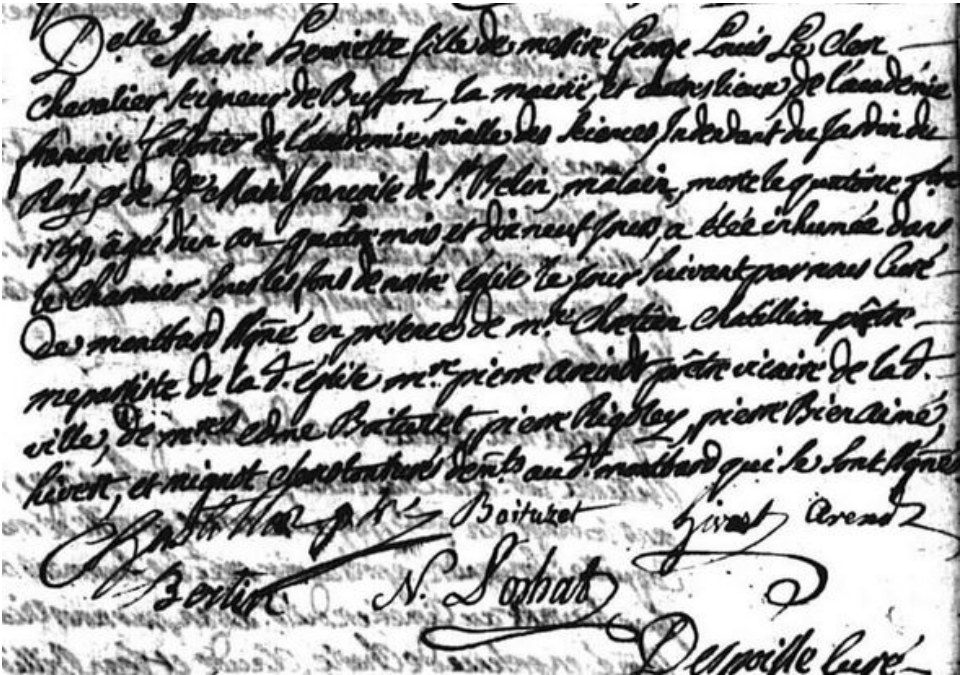 Delle Marie henriette fille de messire George Louis Le clerc
Chevalier seigneur de Buffon, la mairie, et autres lieux de l'académie
françoise trésorier de l'académie roïalle des sciences Intendant du Jardin du
Roy et de De Marie françoise de St Belin, mâlain, morte le quatorze 8bre
1759, âgée d'un an quatre mois, et dix neuf jours, a étée inhumée dans
le Charnier sous les fons de notre église le jour suivant par nous Curé
de montbard ssigné en presence de mre Chretien chatillion prêtre
mepartiste de la d. église mre pierre arendt prêtre vicaire de la d.
ville, de mres edme Boituzet, pierre Rigoley, pierre Bienaimé,
hivert, et mignot demts au dt montbard qui se sont ssignés
Boituzet hivert Arendt
Berlin N. Lophat
Despoisse Curé